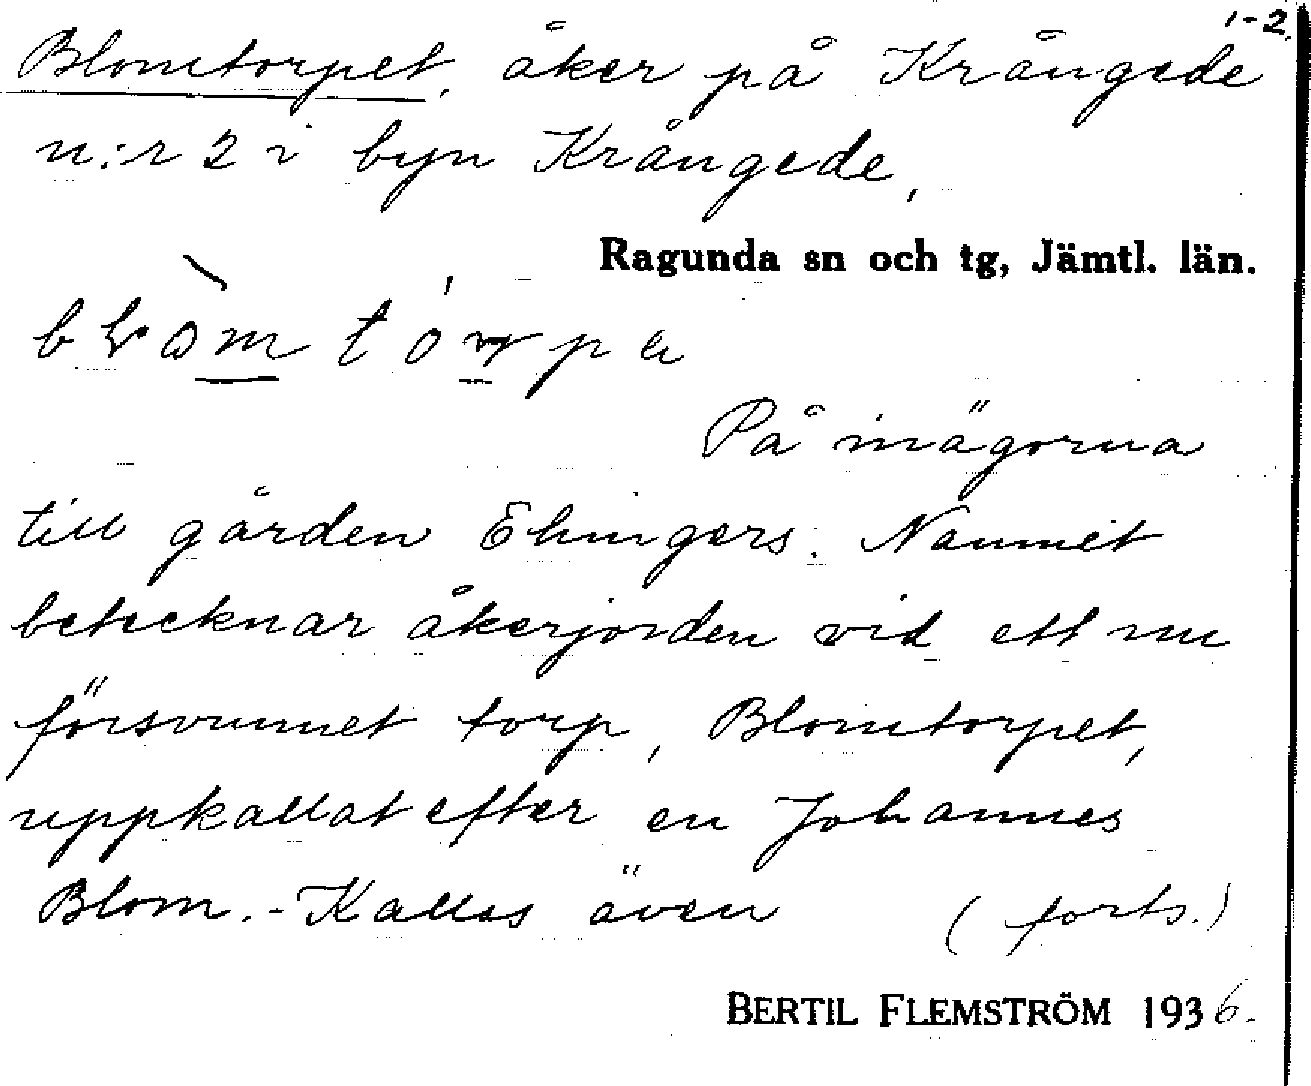 1-2.
Blomtorpet, åker på Krångede
n:r 2 i byn Krångede,
Ragunda sn och tg, Jämtl. län.
På inägorna
till gården Ehingers. Namnet
betecknar åkerjorden vid ett nu
försvunnet torp, Blomtorpet,
uppkallat efter en Johannes
Blom. - Kallas även (forts.)
BERTIL FLEMSTRÖM 1936.